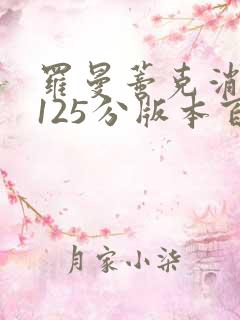 羅曼蒂克消
125分版本百
月家小柒